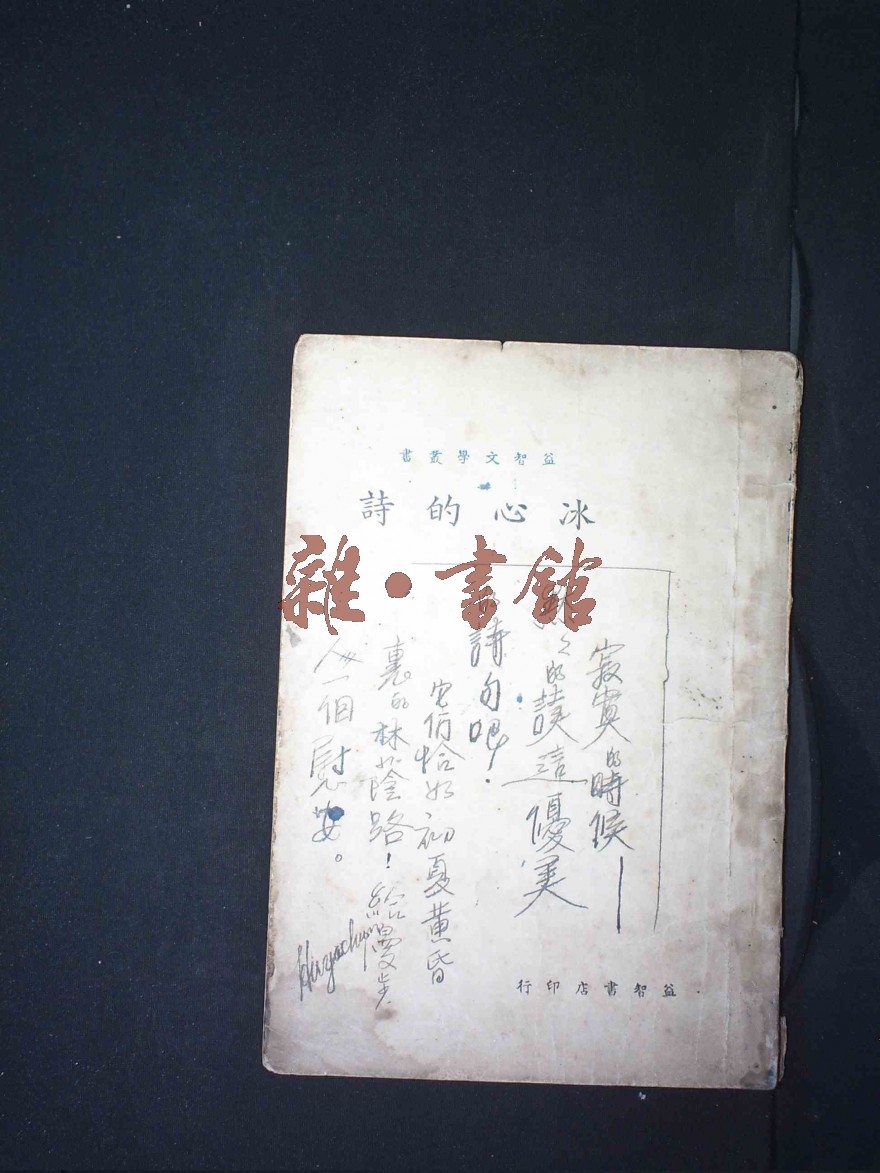 益智文學叢書
冰心的詩
雜·書館
寂寞的時候—
的讀這優美
的詩句吧！
它們恰如初夏黃昏
裏的林蔭路！給漫步
人一個慰安。
益智書店印行